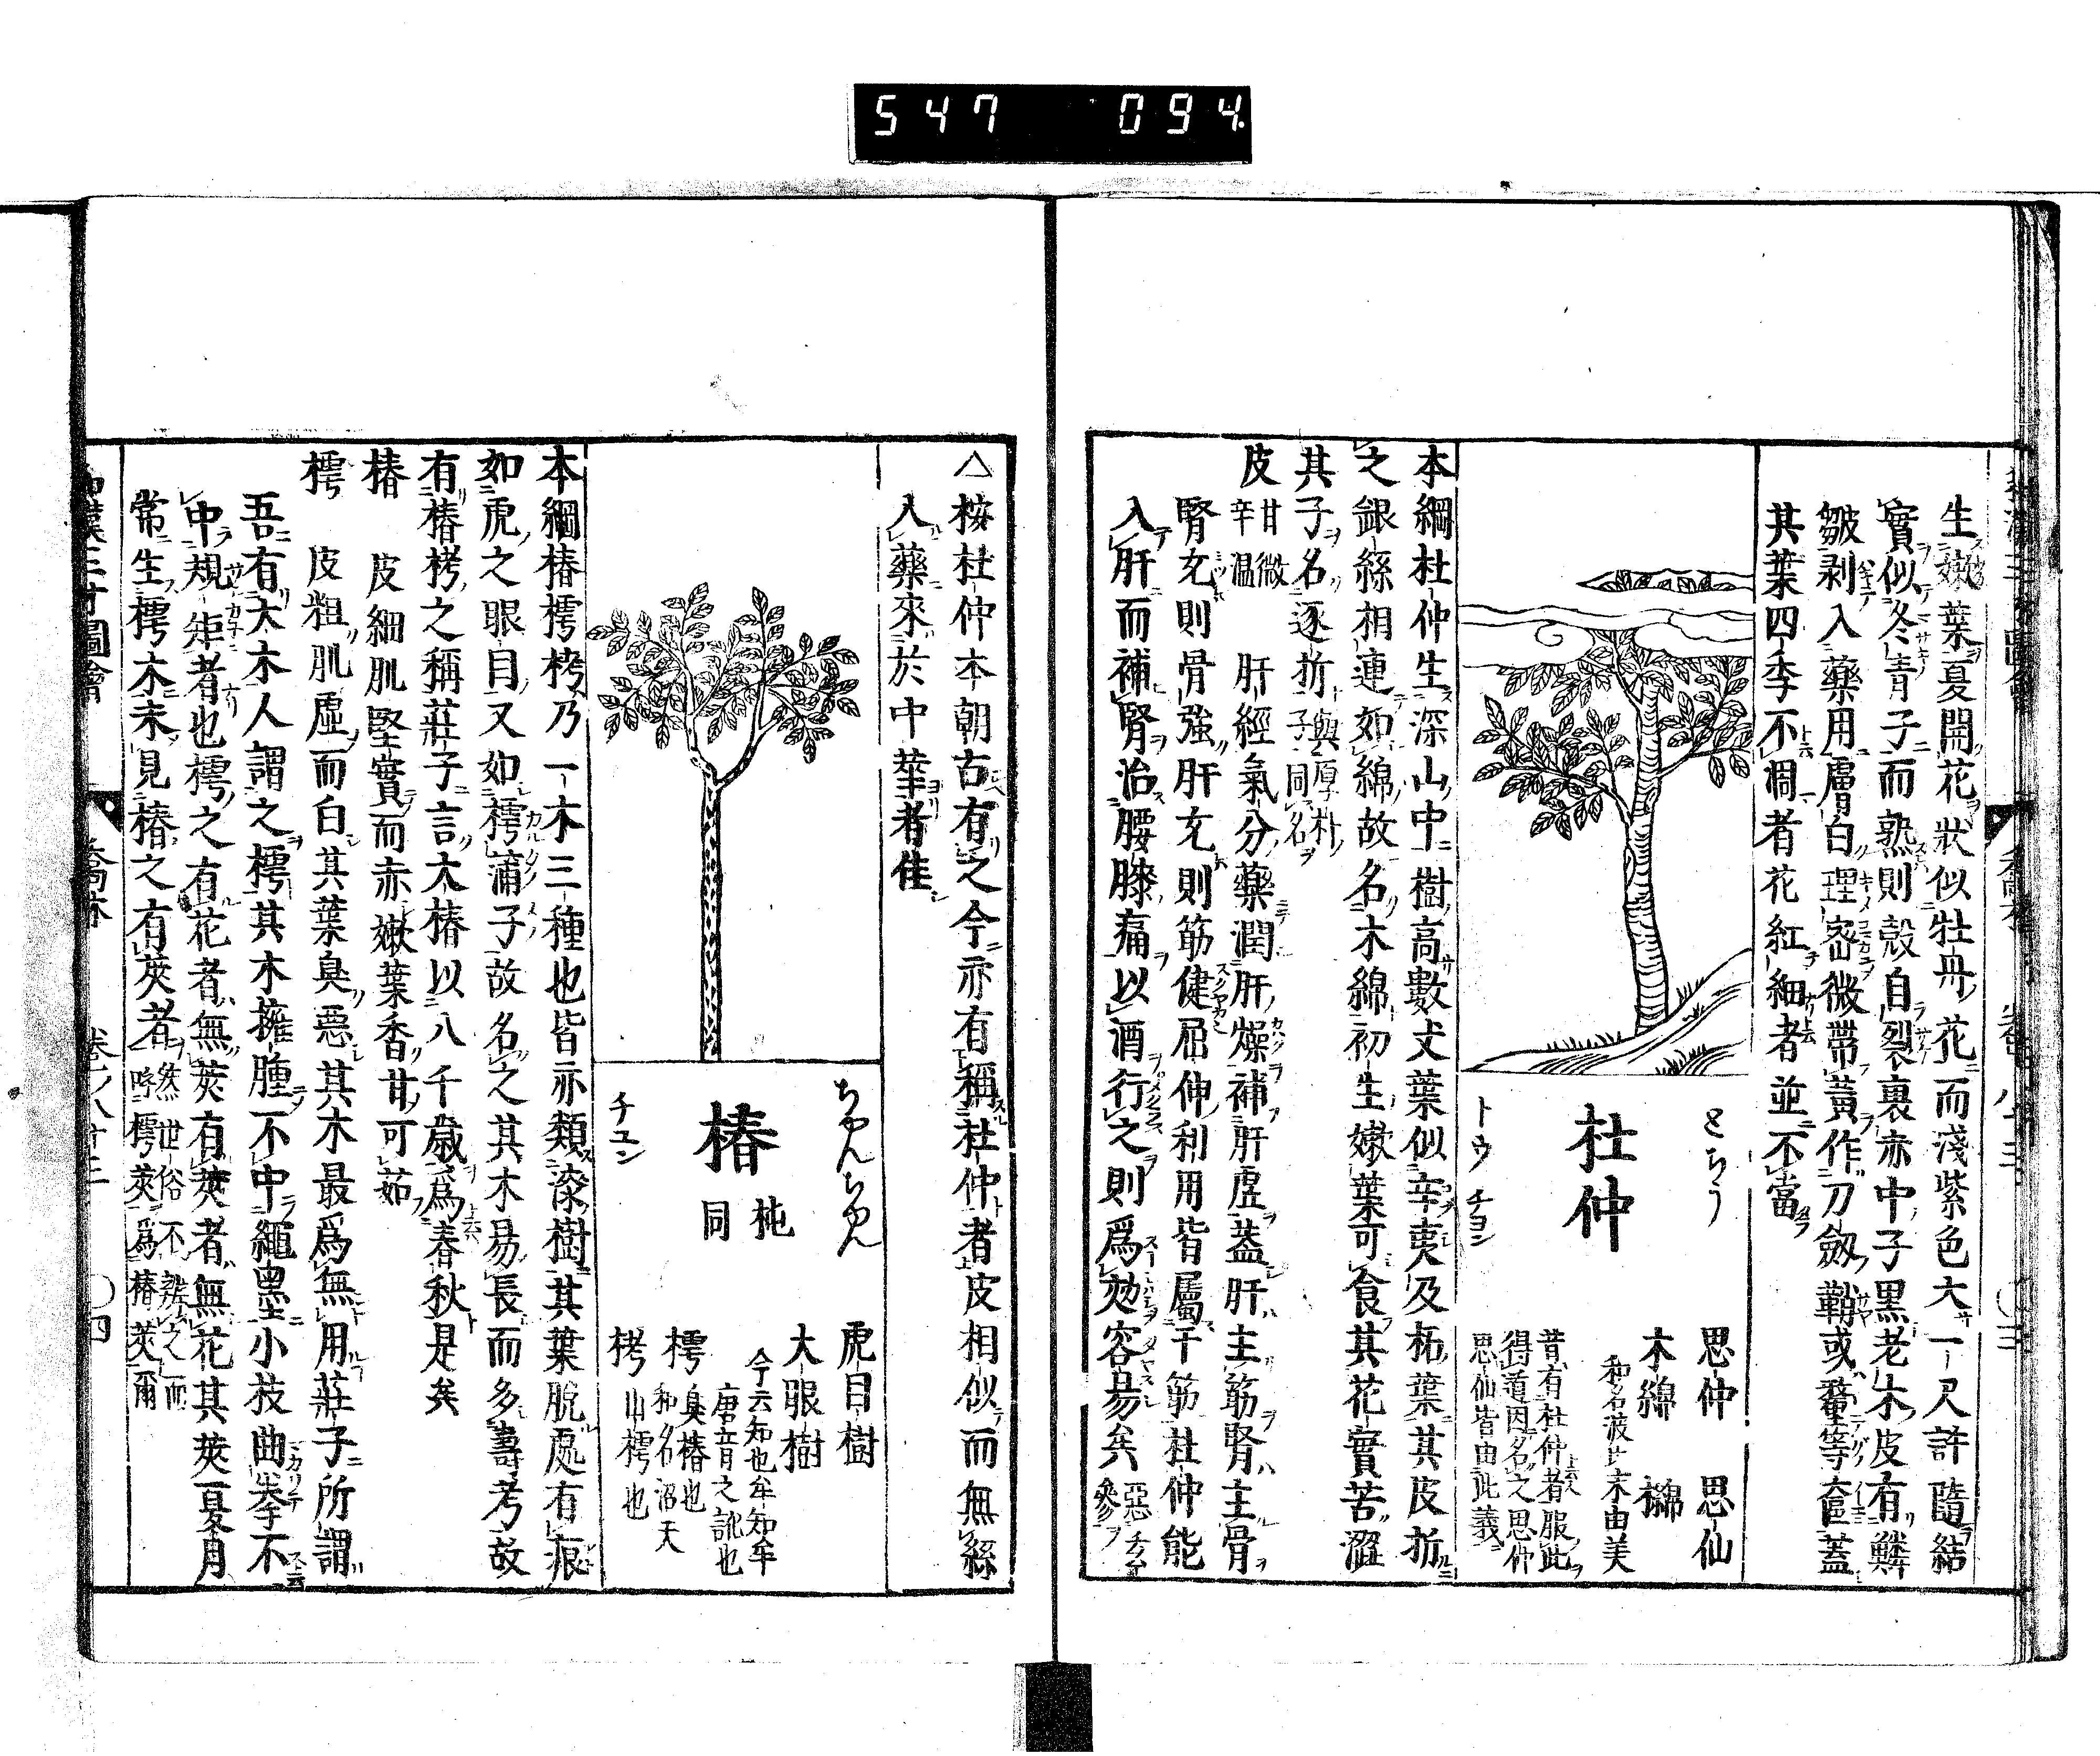 547 094
生嫩葉夏開花狀似牡丹花而淺紫色大一尺許隨結
實似冬青子而熟則殼自裂裏赤中子黑老木皮有鱗
皺剥入藥用膚白理宻微帶黃作刀劔鞘或臺等
其葉四季不凋者花紅細者並不當
とちう
杜仲
トウ チヨン
思仲 思仙
木綿 檰
和名波比末由美
昔有杜仲者服此
得道因名之思仲
思仙皆由此義
本綱杜仲生深山中樹高數丈葉似辛夷及柘葉其皮折
之銀絲相連如綿故名木綿初生嫩葉可食其花實苦澀
其子名逐折 與厚朴子同名
皮 甘微辛温 肝經氣分藥潤肝燥補肝虛蓋肝主筋腎主骨
腎充則骨強肝充則筋健屈伸利用皆屬于筋杜仲能
入肝而補腎治腰膝痛以酒行之則爲効容易矣 惡玄參
△按杜仲本朝古有之今亦有稱杜仲者皮相似而無絲
入藥來於中華者佳
ちやんちやん
椿
杶同
チユン
虎目樹
大眼樹
今云知也牟知牟
唐音之訛也
樗 臭椿也
和名沼天
栲 山樗也
本綱椿樗栲乃一木三種也皆亦類漆樹其葉脫處有痕
如虎之眼目又如樗蒲子故名之其木易長而多壽考故
有椿栲之稱莊子言大椿以八千歲爲春秋是矣
椿 皮細肌堅實而赤嫩葉香甘可茹
樗 皮粗肌虛而白其葉臭惡其木最爲無用莊子所謂
吾有大木人謂之樗其木擁腫不中繩墨小枝曲拳不
中規矩者也樗之有花者無莢有莢者無花其莢夏月
常生樗木未見椿之有莢者 然世俗不辨之而呼樗莢爲椿莢爾
和漢三才圖會 喬木 卷ノ八十三 〇四